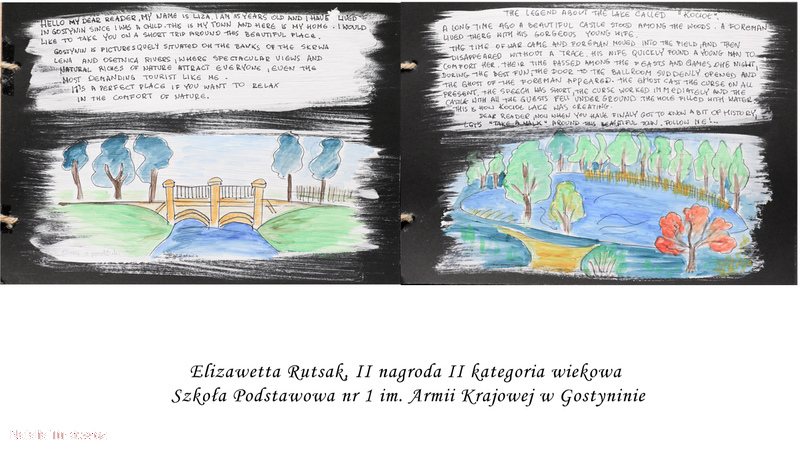 HELLO MY DEAR READER, MY NAME IS LIZA, I AM 15 YEARS OLD AND I HAVE LIVED
IN GOSTYNIN SINCE I WAS A CHILD. THIS IS MY TOWN AND HERE IS MY HOME. I WOULD
LIKE TO TAKE YOU ON A SHORT TRIP AROUND THIS BEAUTIFUL PLACE.
GOSTYNIN IS PICTURESQUELY SITUATED ON THE BANKS OF THE SKRWA
LENA AND OSETNICA RIVERS, WHERE SPECTACULAR VIEWS AND
NATURAL RICHES OF NATURE ATTRACT EVERYONE, EVEN THE
MOST DEMANDING TOURIST LIKE ME.
IT'S A PERFECT PLACE IF YOU WANT TO RELAX
IN THE COMFORT OF NATURE.
THE LEGEND ABOUT THE LAKE CALLED "KOCIOŁ".
A LONG TIME AGO A BEAUTIFUL CASTLE STOOD AMONG THE WORDS. A FOREMAN
LIVED THERE WITH HIS GORGEOUS YOUNG WIFE.
THE TIME OF WAR CAME AND FOREMAN MOVED INTO THE FIELD, AND THEN
DISAPPEARED WITHOUT A TRACE. HIS WIFE QUICKLY FOUND A YOUNG MAN TO
COMFORT HER. THEIR TIME PASSED AMONG THE FEASTS AND GAMES. ONE NIGHT,
DURING THE BEST FUN, THE DOOR TO THE BALLROOM SUDDENLY OPENED AND
THE GHOST OF THE FOREMAN APPEARED. THE GHOST CAST THE CURSE ON ALL
PRESENT. THE SPEECH HAS SHORT, THE CURSE WORKED IMMEDIATELY AND THE
CASTLE WITH ALL THE GUESTS FELL UNDER GROUND THE HOLE FILLED WITH WATER.
THIS IS HOW KOCIOŁ LAKE WAS CREATING.
DEAR READER NOW WHEN YOU HAVE FINALLY GOT TO KNOW A BIT OF HISTORY,
LET'S "TAKE A WALK" AROUND THIS BEAUTIFUL TOWN. FOLLOW ME!...
Elizawetta Rutsak, II nagroda II kategoria wiekowa
Szkoła Podstawowa nr 1 im. Armii Krajowej w Gostyninie